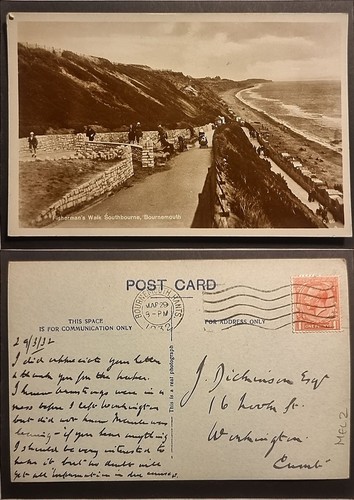 Fisherman's Walk Southbourne, Bournemouth
POST CARD
THIS SPACE
IS FOR COMMUNICATION ONLY
BOURNEMOUTH HANTS
MAR 29
9 - PM
1932
FOR ADDRESS ONLY
This is a real photograph
29/3/32
I did appreciate your letter
& thank you for the
I knew were in a
mess before I left Workington
but did not know was
leaving - if you hear anything
I should be very interested to
hear it but no doubt will
get all information in due course.
J. Dickinson Esq
16 North St.
Workington
Cumb
MEL 2